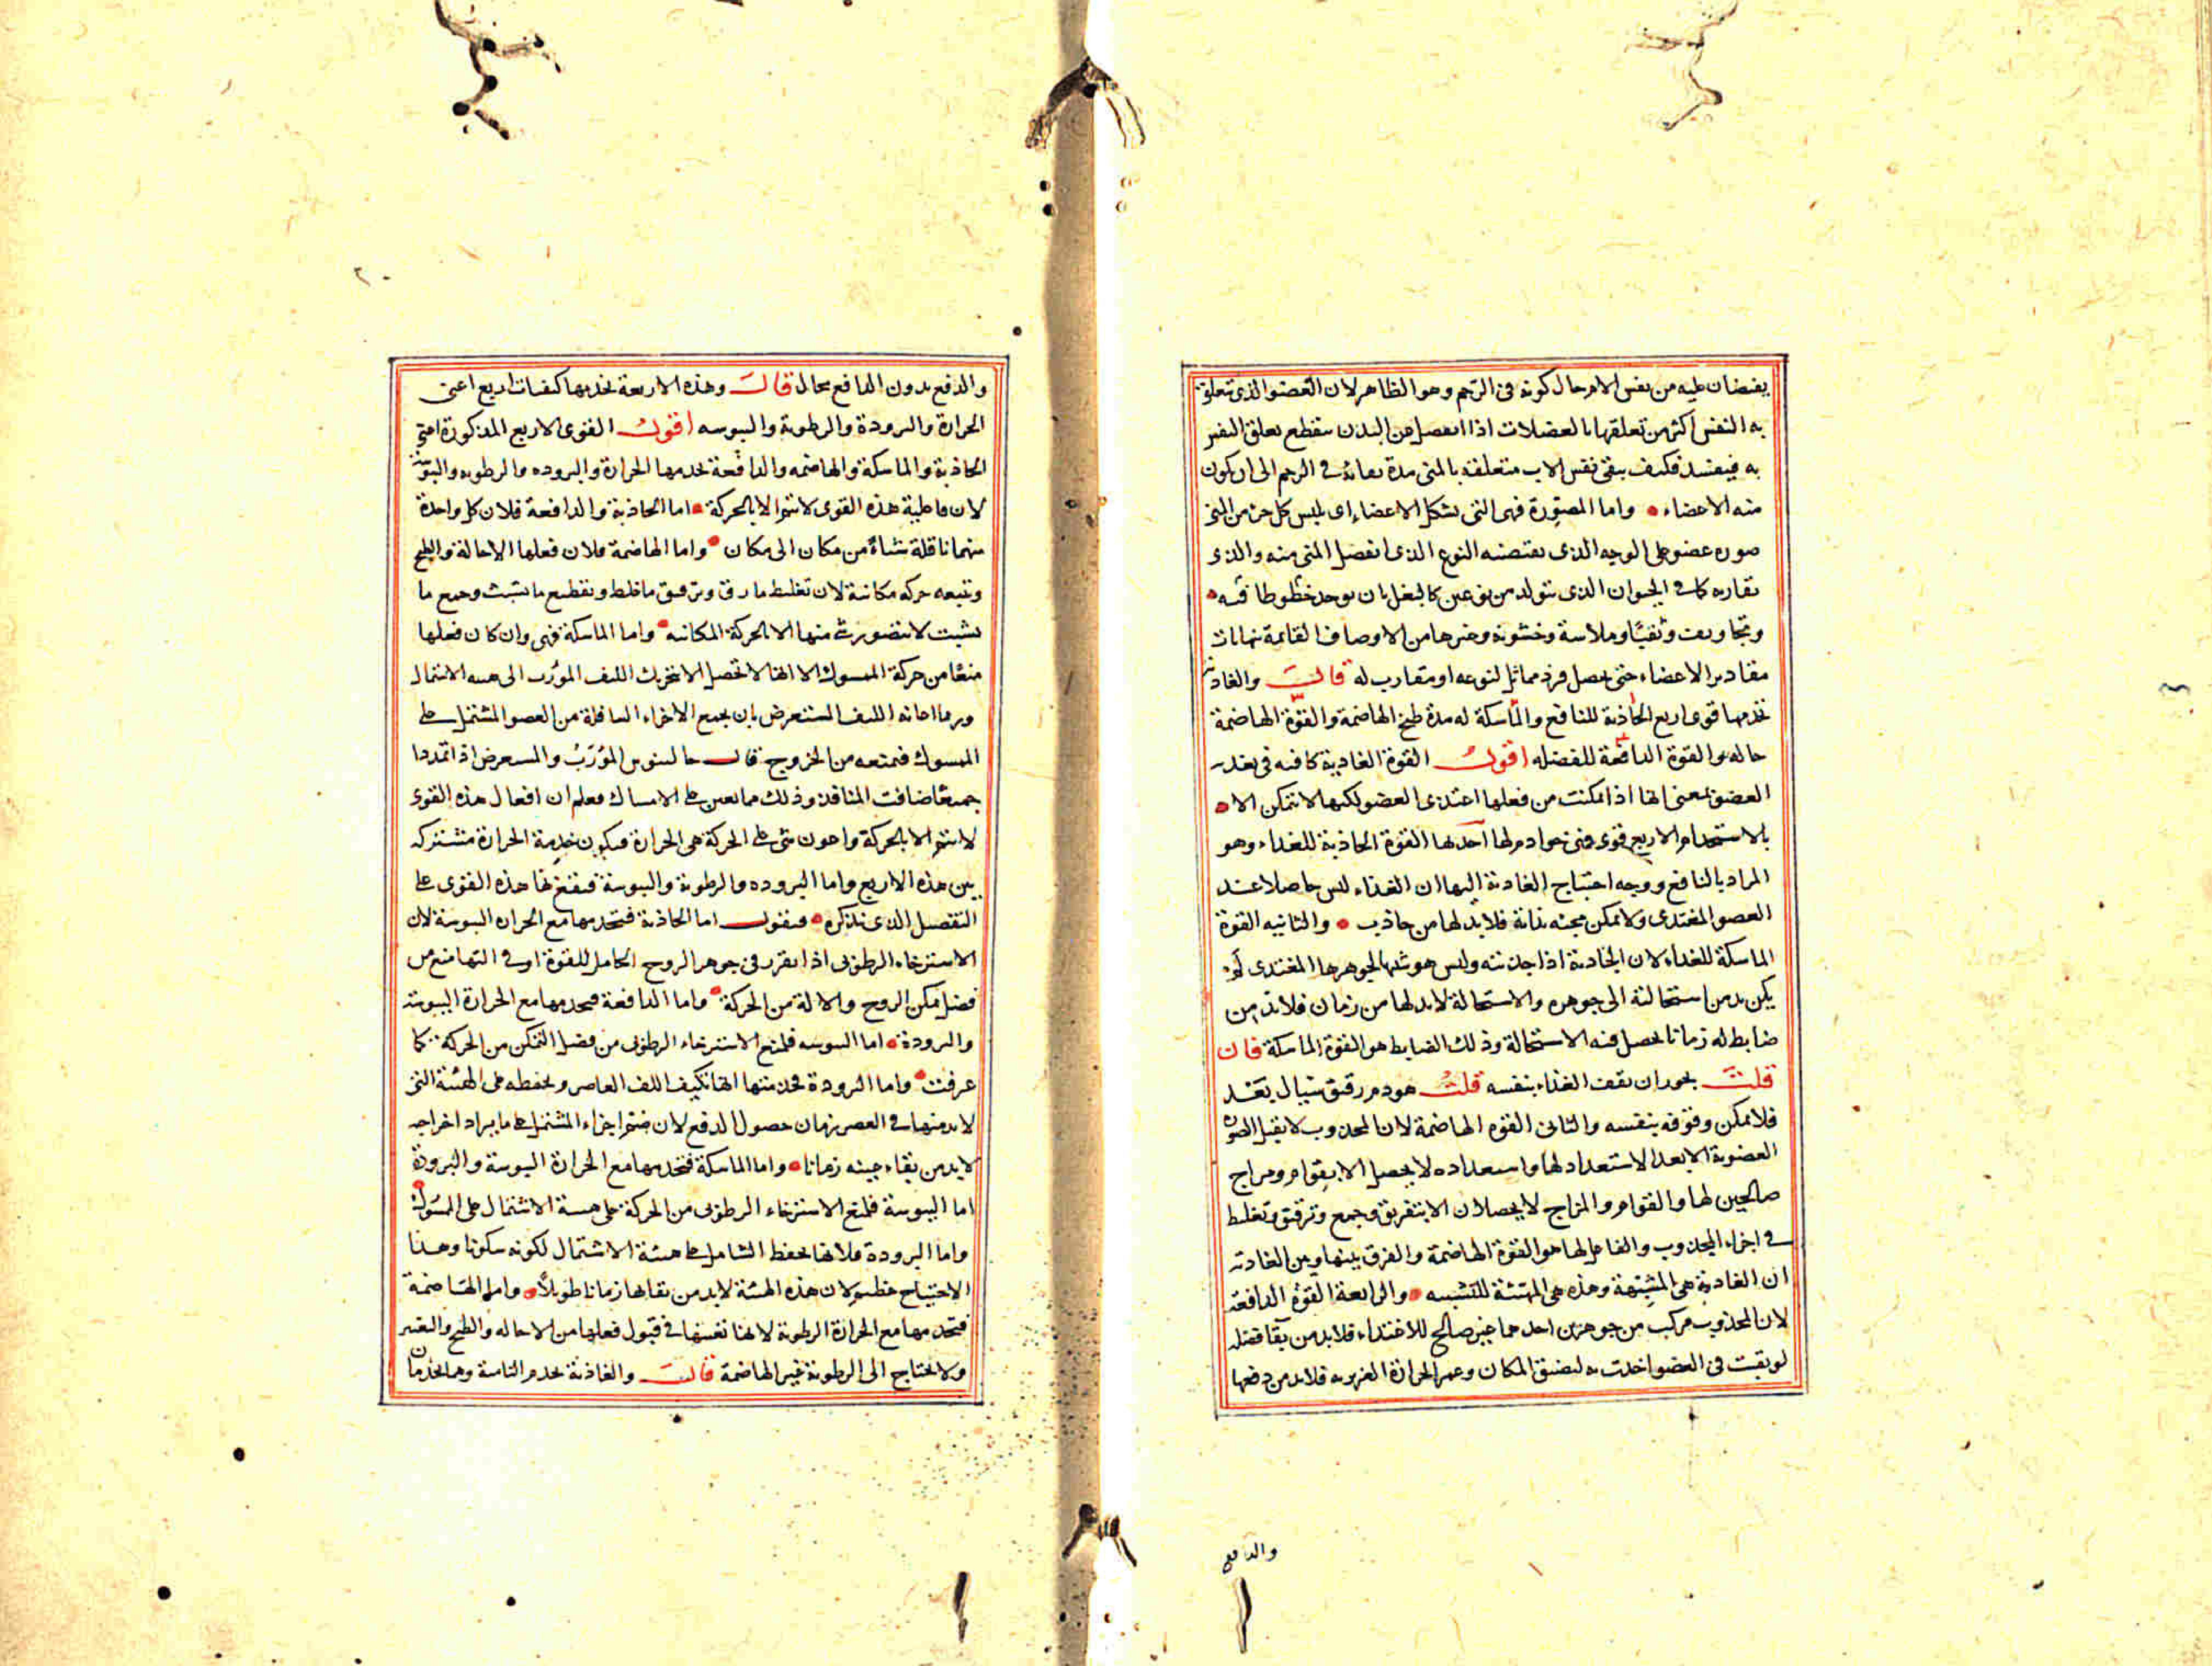 يفيضان عليه من نفس الام حال كونه فى الرحم وهو الظاهر لان العضو الذى تعلق
به النفس اكثر من تعلقها بالعضلات اذا انفصل عن البدن ينقطع تعلق النفس
به فيفسد فكيف يبقى نفس الاب متعلقة بالمنى مدة بقائه فى الرحم الى ان يكون
منه الاعضاء واما المصورة فهى التى تشكل الاعضاء اى يلبس كل جزء من المنى
صورة عضو على الوجه الذى يقتضيه النوع الذى انفصل المنى منه والذى
يقاربه كما فى الحيوان الذى يتولد من نوعين كالبغل بان يوجد خطوطا فيه
وتجاويف وثقبا وملاسة وخشونة وغيرها من الاوصاف القائمة بنهايات
مقادير الاعضاء حتى يحصل فرد مماثل لنوعه او مقارب له قالـــ والغاذية
تخدمها قوى اربع الجاذبة للنافع والماسكة له مدة طبخ الهاضمة والقوة الهاضمة
حاله والقوة الدافعة للفضله اقولـــ القوة الغاذية كافيه فى تغذية
العضو بمعنى انها اذا مكنت من فعلها اغتذى العضو لكنها لا تتمكن الا
بالاستخدام لاربع قوى فهى خوادم لها احدها القوة الجاذبة للغذاء وهو
المراد بالنافع ووجه احتياج الغاذية اليها ان الغذاء ليس حاصلا عند
العضو المغتذى ولا يمكن مجيئه بذاته فلا بد لها من جاذب والثانيه القوة
الماسكة للغذاء لان الجاذبة اذا جذبته وليس هو شبيها لجوهرها المغتذى لم
يكن بد من استحالته الى جوهره والاستحالة لا بد لها من زمان فلا بد من
ضابط له زمانا يحصل فيه الاستحالة وذلك الضابط هو القوة الماسكة فان
قلتـــ يجوز ان يقف الغذاء بنفسه قلتـــ هو دم رقيق سيال يعد
فلا يمكن وقوفه بنفسه والثالث القوه الهاضمة لان المجذوب لا يقبل الصورة
العضوية الا بعد الاستعداد لها واستعداده لا يحصل الا بقوام ومزاج
صالحين لها والقوام والمزاج لا يحصلان الا بتفريق وجمع وترقيق وتغليظ
فى اجزاء المجذوب والفاعل لها هو القوة الهاضمة والفرق بينها وبين الغاذية
ان الغاذية هى المشبهة وهذه هى المهيئة للتشبيه والرابعة القوة الدافعة
لان المجذوب مركب من جوهرين احدهما غير صالح للاغتذاء فلا بد من بقاء فضله
لو بقيت فى العضو اخذت به لضيق المكان وغمر الحرارة الغريزيه فلا بد من دفعها
والدفع
٢٠
والدفع بدون الدافع محال قالـــ وهذه الاربعة يخدمها كيفيات اربع اعنى
الحرارة والبرودة والرطوبة واليبوسه اقولـــ القوى الاربع المذكورة اعنى
الجاذبة والماسكة والهاضمه والدافعة يخدمها الحرارة والبروده والرطوبه واليبوسة
لان فاعلية هذه القوى لا تتم الا بالحركة اما الجاذبة والدافعة فلان كل واحدة
منهما ناقلة شيئا من مكان الى مكان واما الهاضمة فلان فعلها الاحالة والطبخ
ويتبعه حركه مكانية لان تغليظ ما رق وترقيق ما غلظ وتقطيع ما تشبث وجمع ما
تشتت لا يتصور شئ منها الا بالحركة المكانيه واما الماسكة فهى وان كان فعلها
منعا من حركة الممسوك الا انها لا تحصل الا بتحريك الليف المورب الى هيئه الاشتمال
وربما اعانه الليف المستعرض بان يجمع الاجزاء السافلة من العضو المشتمل على
الممسوك فتمنعه من الخروج قالـــ جالينوس المورب والمستعرض اذا تمددا
جميعا ضاقت المنافذ وذلك مما يعين على الامساك فعلم ان افعال هذه القوى
لا تتم الا بالحركة واعون شئ على الحركة هى الحرارة فيكون خدمة الحرارة مشتركه
بين هذه الاربع واما البروده والرطوبة واليبوسة فينتفع بها هذه القوى على
التفصيل الذى نذكره فنقولـــ اما الجاذبة فتخدمها مع الحراره اليبوسة لان
الاسترخاء الرطوبى اذا تقرر فى جوهر الروح الحامل للقوة او فى التها منع من
فضل تمكن الروح والالة من الحركة واما الدافعة فيخدمها مع الحرارة اليبوسة
والبرودة اما اليبوسه فلمنع الاسترخاء الرطوبى من فضل التمكن من الحركة كما
عرفت واما البرودة فخدمتها انها تكيف الليف العاصر ويحفظه على الهيئة التى
لا بد منها فى العصر زمان حصول الدفع لان ضم اجزاء المشتمل على ما يراد اخراجه
لا بد من بقاء هيئه زمانا واما الماسكة فتخدمها مع الحرارة اليبوسة والبرودة
اما اليبوسة فلمنع الاسترخاء الرطوبى من الحركة على هيئة الاشتمال على الممسوك
واما البرودة فلانها يحفظ الشامل على هيئة الاشتمال لكونه سكونا وهذا
الاحتياج عظيم لان هذه الهيئة لا بد من بقائها زمانا طويلا واما الهاضمة
فتخدمها مع الحرارة الرطوبة لانها تعينها فى قبول فعلها من الاحاله والطبخ والتغير
ولا يحتاج الى الرطوبة غير الهاضمة قالـــ والغاذية تخدم النامية وهما يخدمان